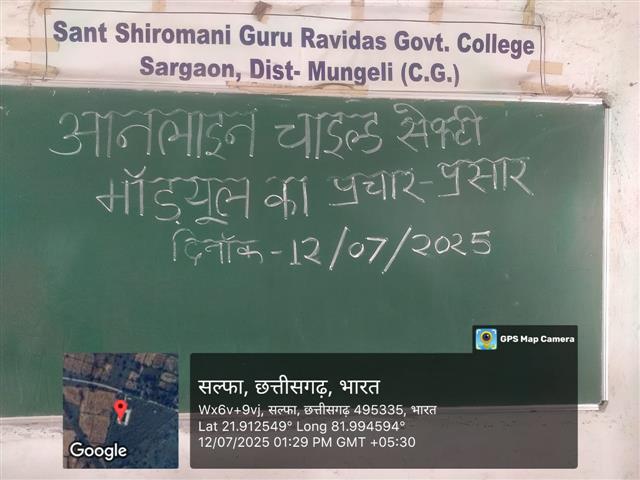 Sant Shiromani Guru Ravidas Govt. College
Sargaon, Dist- Mungeli (C.G.)
आनलाइन चाइल्ड सेफ्टी
मॉड्यूल का प्रचार-प्रसार
दिनॉक -12/07/2025
GPS Map Camera
सल्फा, छत्तीसगढ़, भारत
Wx6v+9vj, सल्फा, छत्तीसगढ़ 495335, भारत
Lat 21.912549° Long 81.994594°
12/07/2025 01:29 PM GMT +05:30
Google